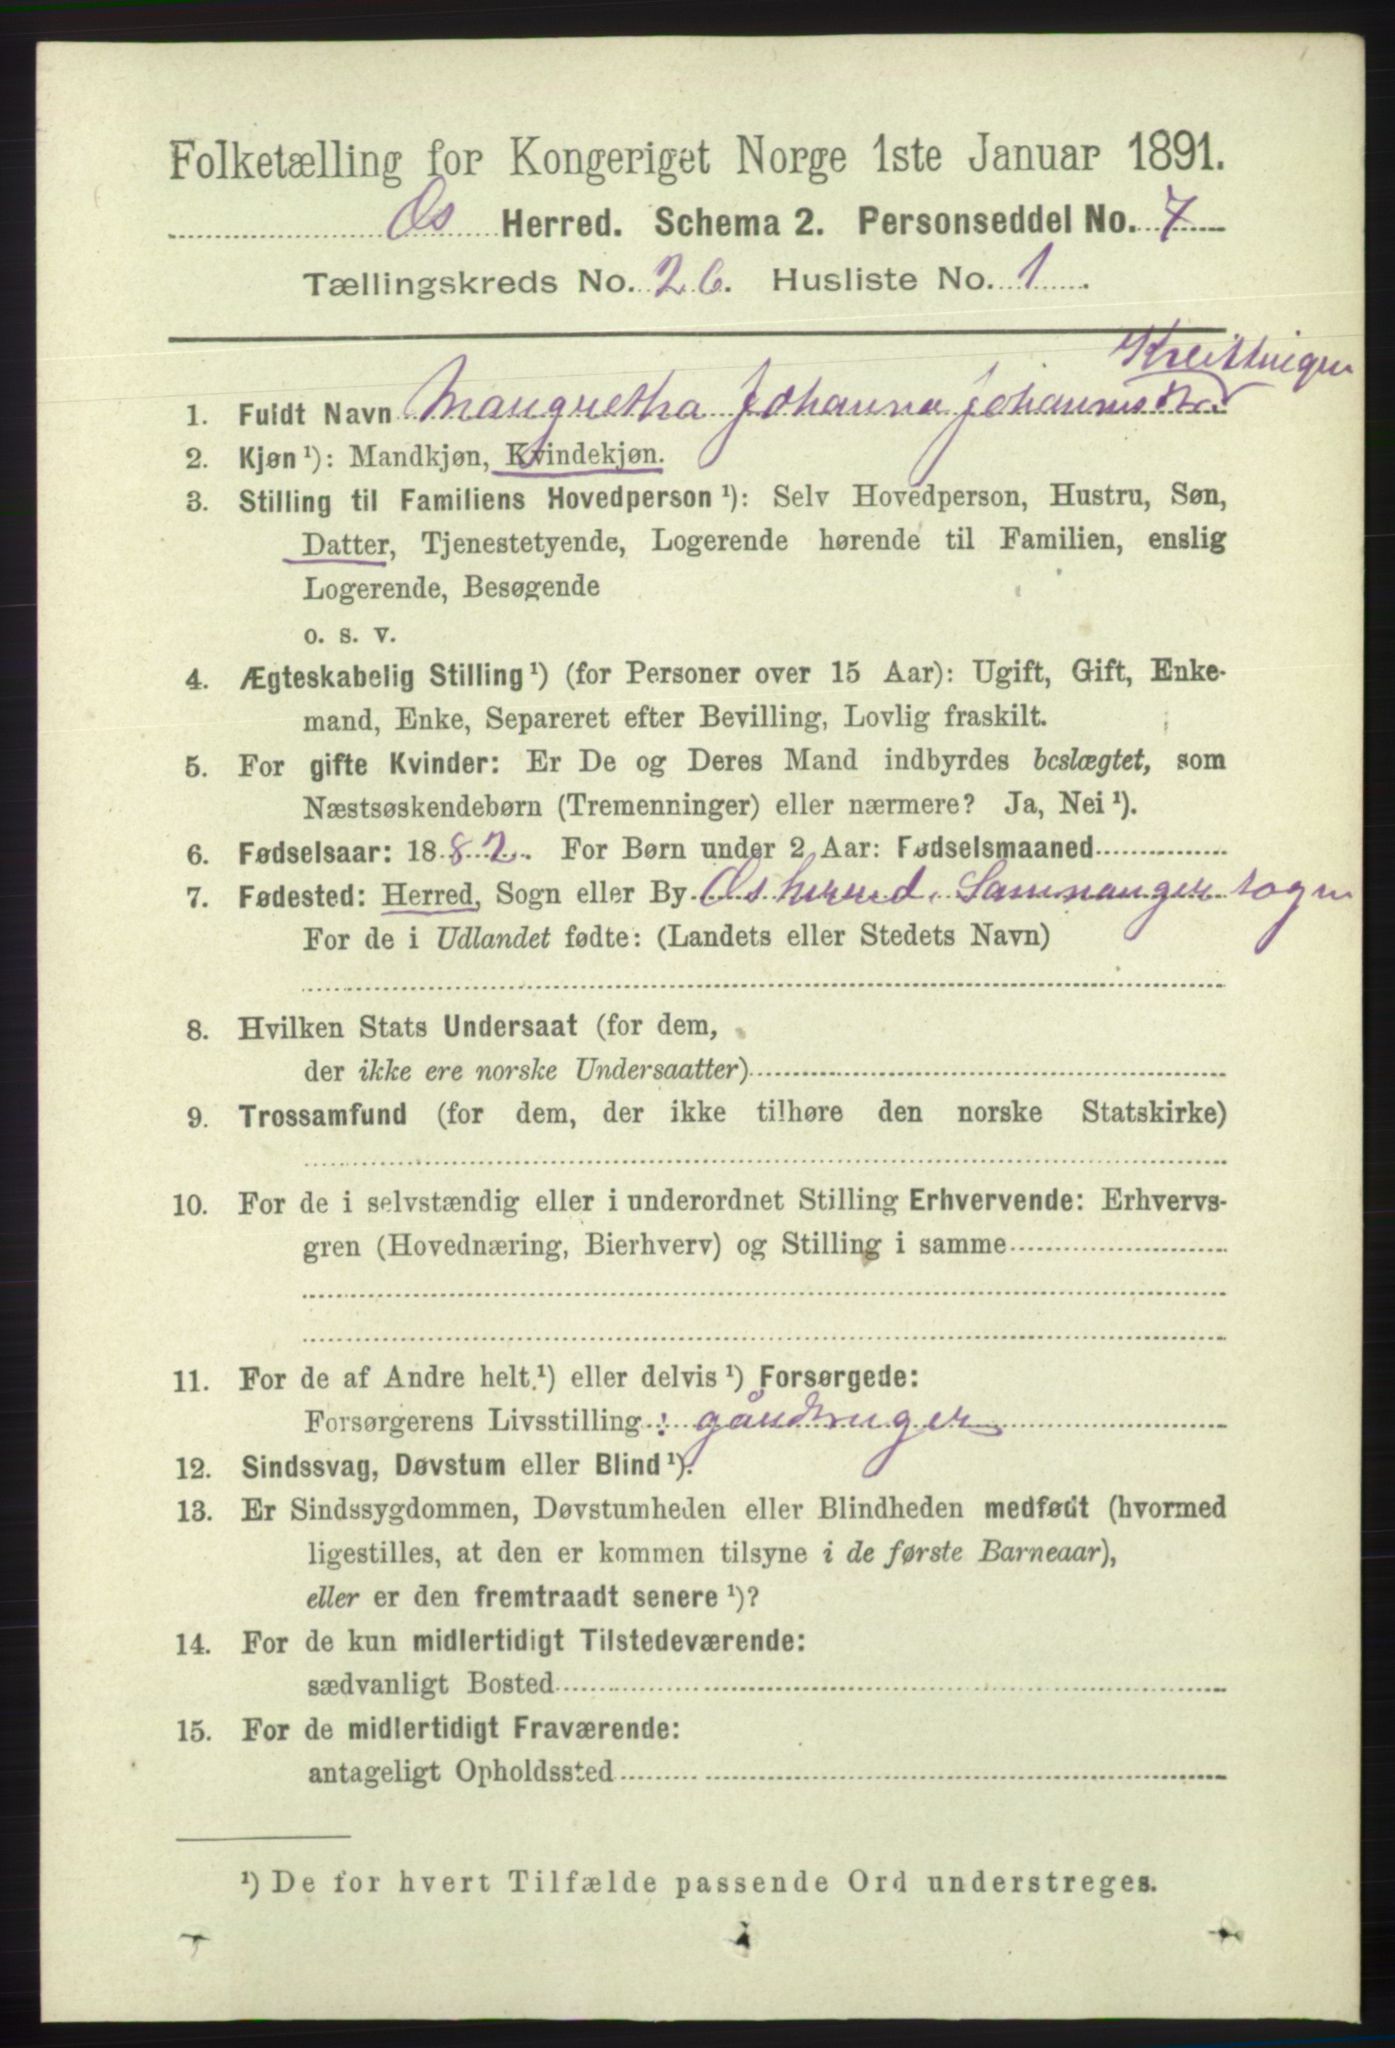 Folketælling for Kongeriget Norge 1ste Januar 1891.
Os Herred. Schema 2. Personseddel No. 7
Tællingskreds No. 26. Husliste No. 1.
1. Fuldt Navn Maugretha Johanna Johannes
2. Kjøn ¹): Mandkjøn, Kvindekjøn.
3. Stilling til Familiens Hovedperson ¹): Selv Hovedperson, Hustru, Søn,
Datter, Tjenestetyende, Logerende hørende til Familien, enslig
Logerende, Besøgende
o. s. v.
4. Ægteskabelig Stilling ¹) (for Personer over 15 Aar): Ugift, Gift, Enke-
mand, Enke, Separeret efter Bevilling, Lovlig fraskilt.
5. For gifte Kvinder: Er De og Deres Mand indbyrdes beslægtet, som
Næstsøskendebørn (Tremenninger) eller nærmere? Ja, Nei ¹).
6. Fødselsaar: 1882. For Børn under 2 Aar: Fødselsmaaned
7. Fødested: Herred, Sogn eller By Os herred, Sammanger sogn
For de i Udlandet fødte: (Landets eller Stedets Navn)
8. Hvilken Stats Undersaat (for dem,
der ikke ere norske Undersaatter)
9. Trossamfund (for dem, der ikke tilhøre den norske Statskirke)
10. For de i selvstændig eller i underordnet Stilling Erhvervende: Erhvervs-
gren (Hovednæring, Bierhverv) og Stilling i samme
11. For de af Andre helt ¹) eller delvis ¹) Forsørgede:
Forsørgerens Livsstilling : gårdbruger
12. Sindssvag, Døvstum eller Blind ¹).
13. Er Sindssygdommen, Døvstumheden eller Blindheden medfødt (hvormed
ligestilles, at den er kommen tilsyne i de første Barneaar),
eller er den fremtraadt senere ¹)?
14. For de kun midlertidigt Tilstedeværende:
sædvanligt Bosted
15. For de midlertidigt Fraværende:
antageligt Opholdssted
¹) De for hvert Tilfælde passende Ord understreges.